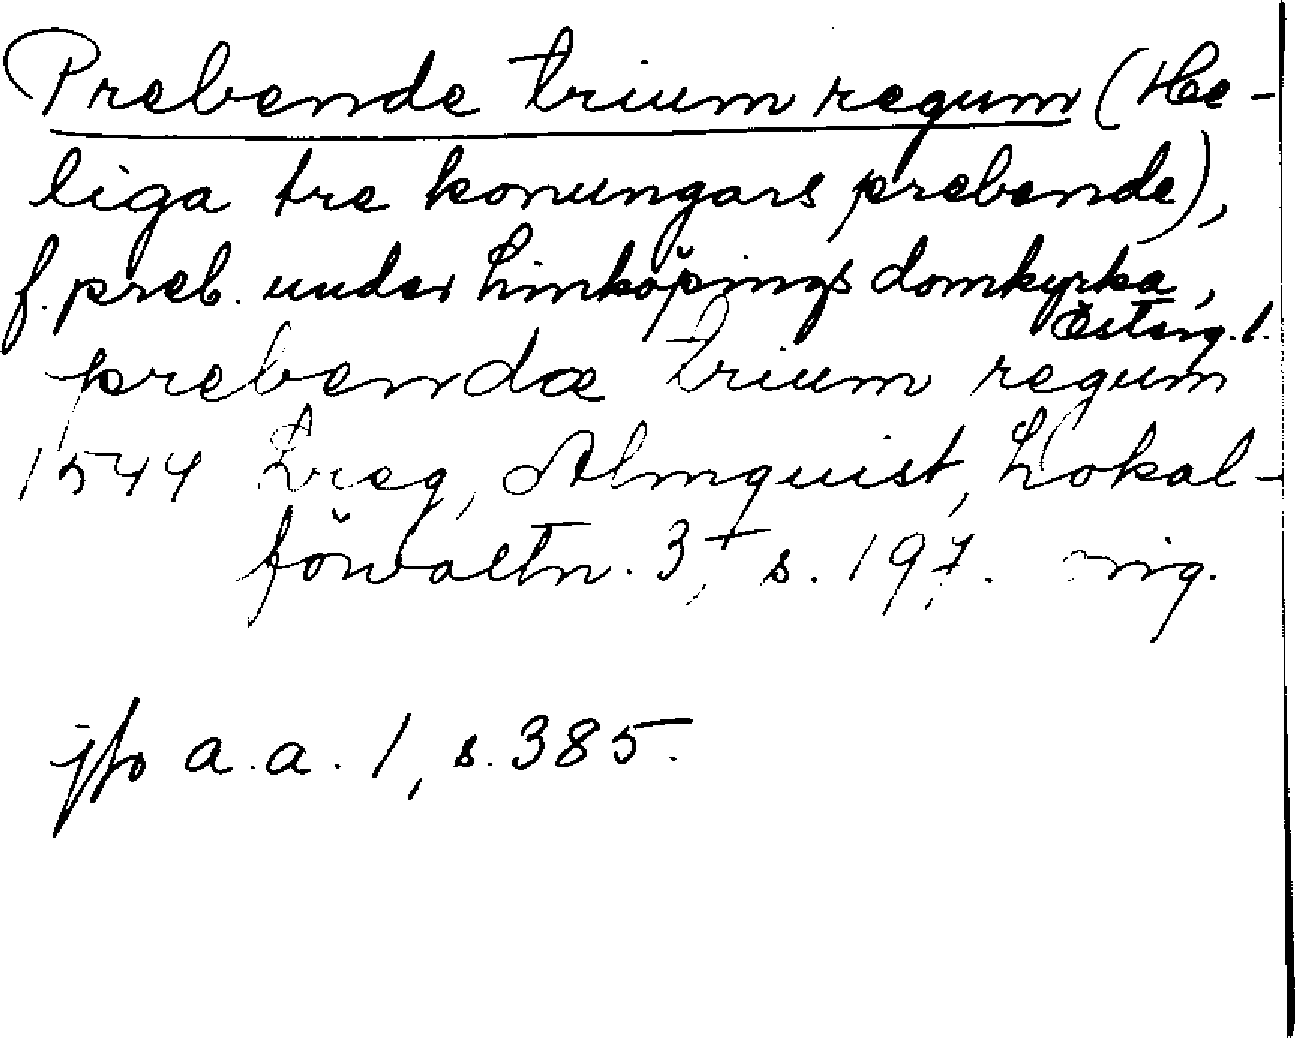 Prebende trium regum (He-
liga tre konungars prebende),
f. preb. under Linköpings domkyrka,
Österg. l.
prebendæ trium regum
1544 Lreg, Almquist, Lokal-
förvaltn. 3, s. 197. orig.
jfr a.a. 1, s. 385.